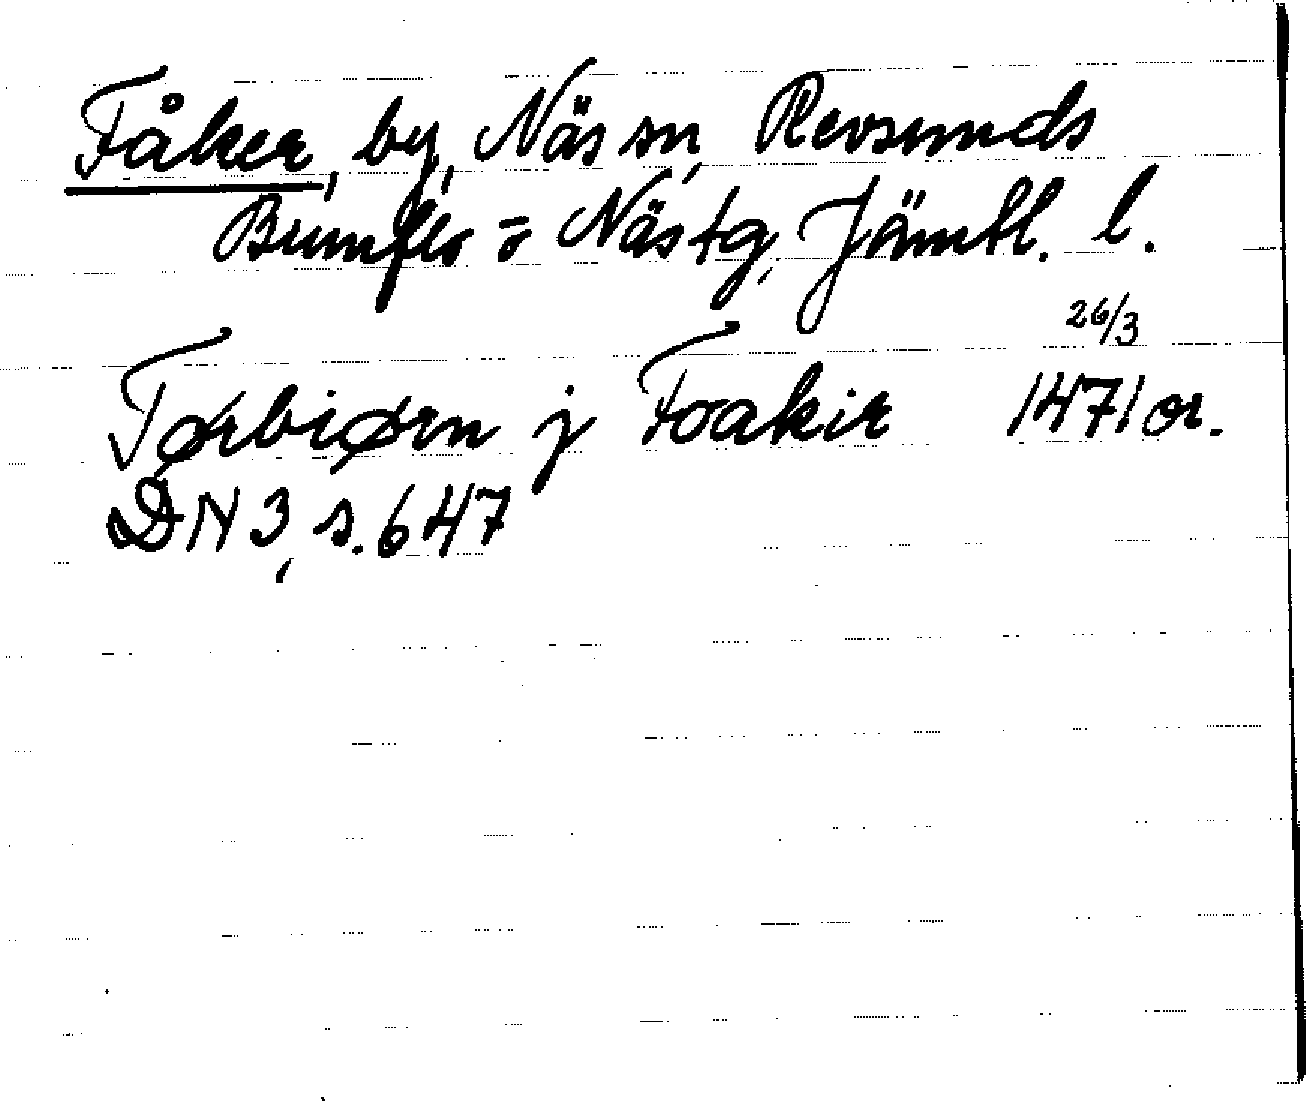 Fåker, by, Näs sn, Revsunds
Brunflo o Näs tg, Jämtl. l.
26/3
Tørbiørn j Foakir 1471 or.
DN 3, s. 647